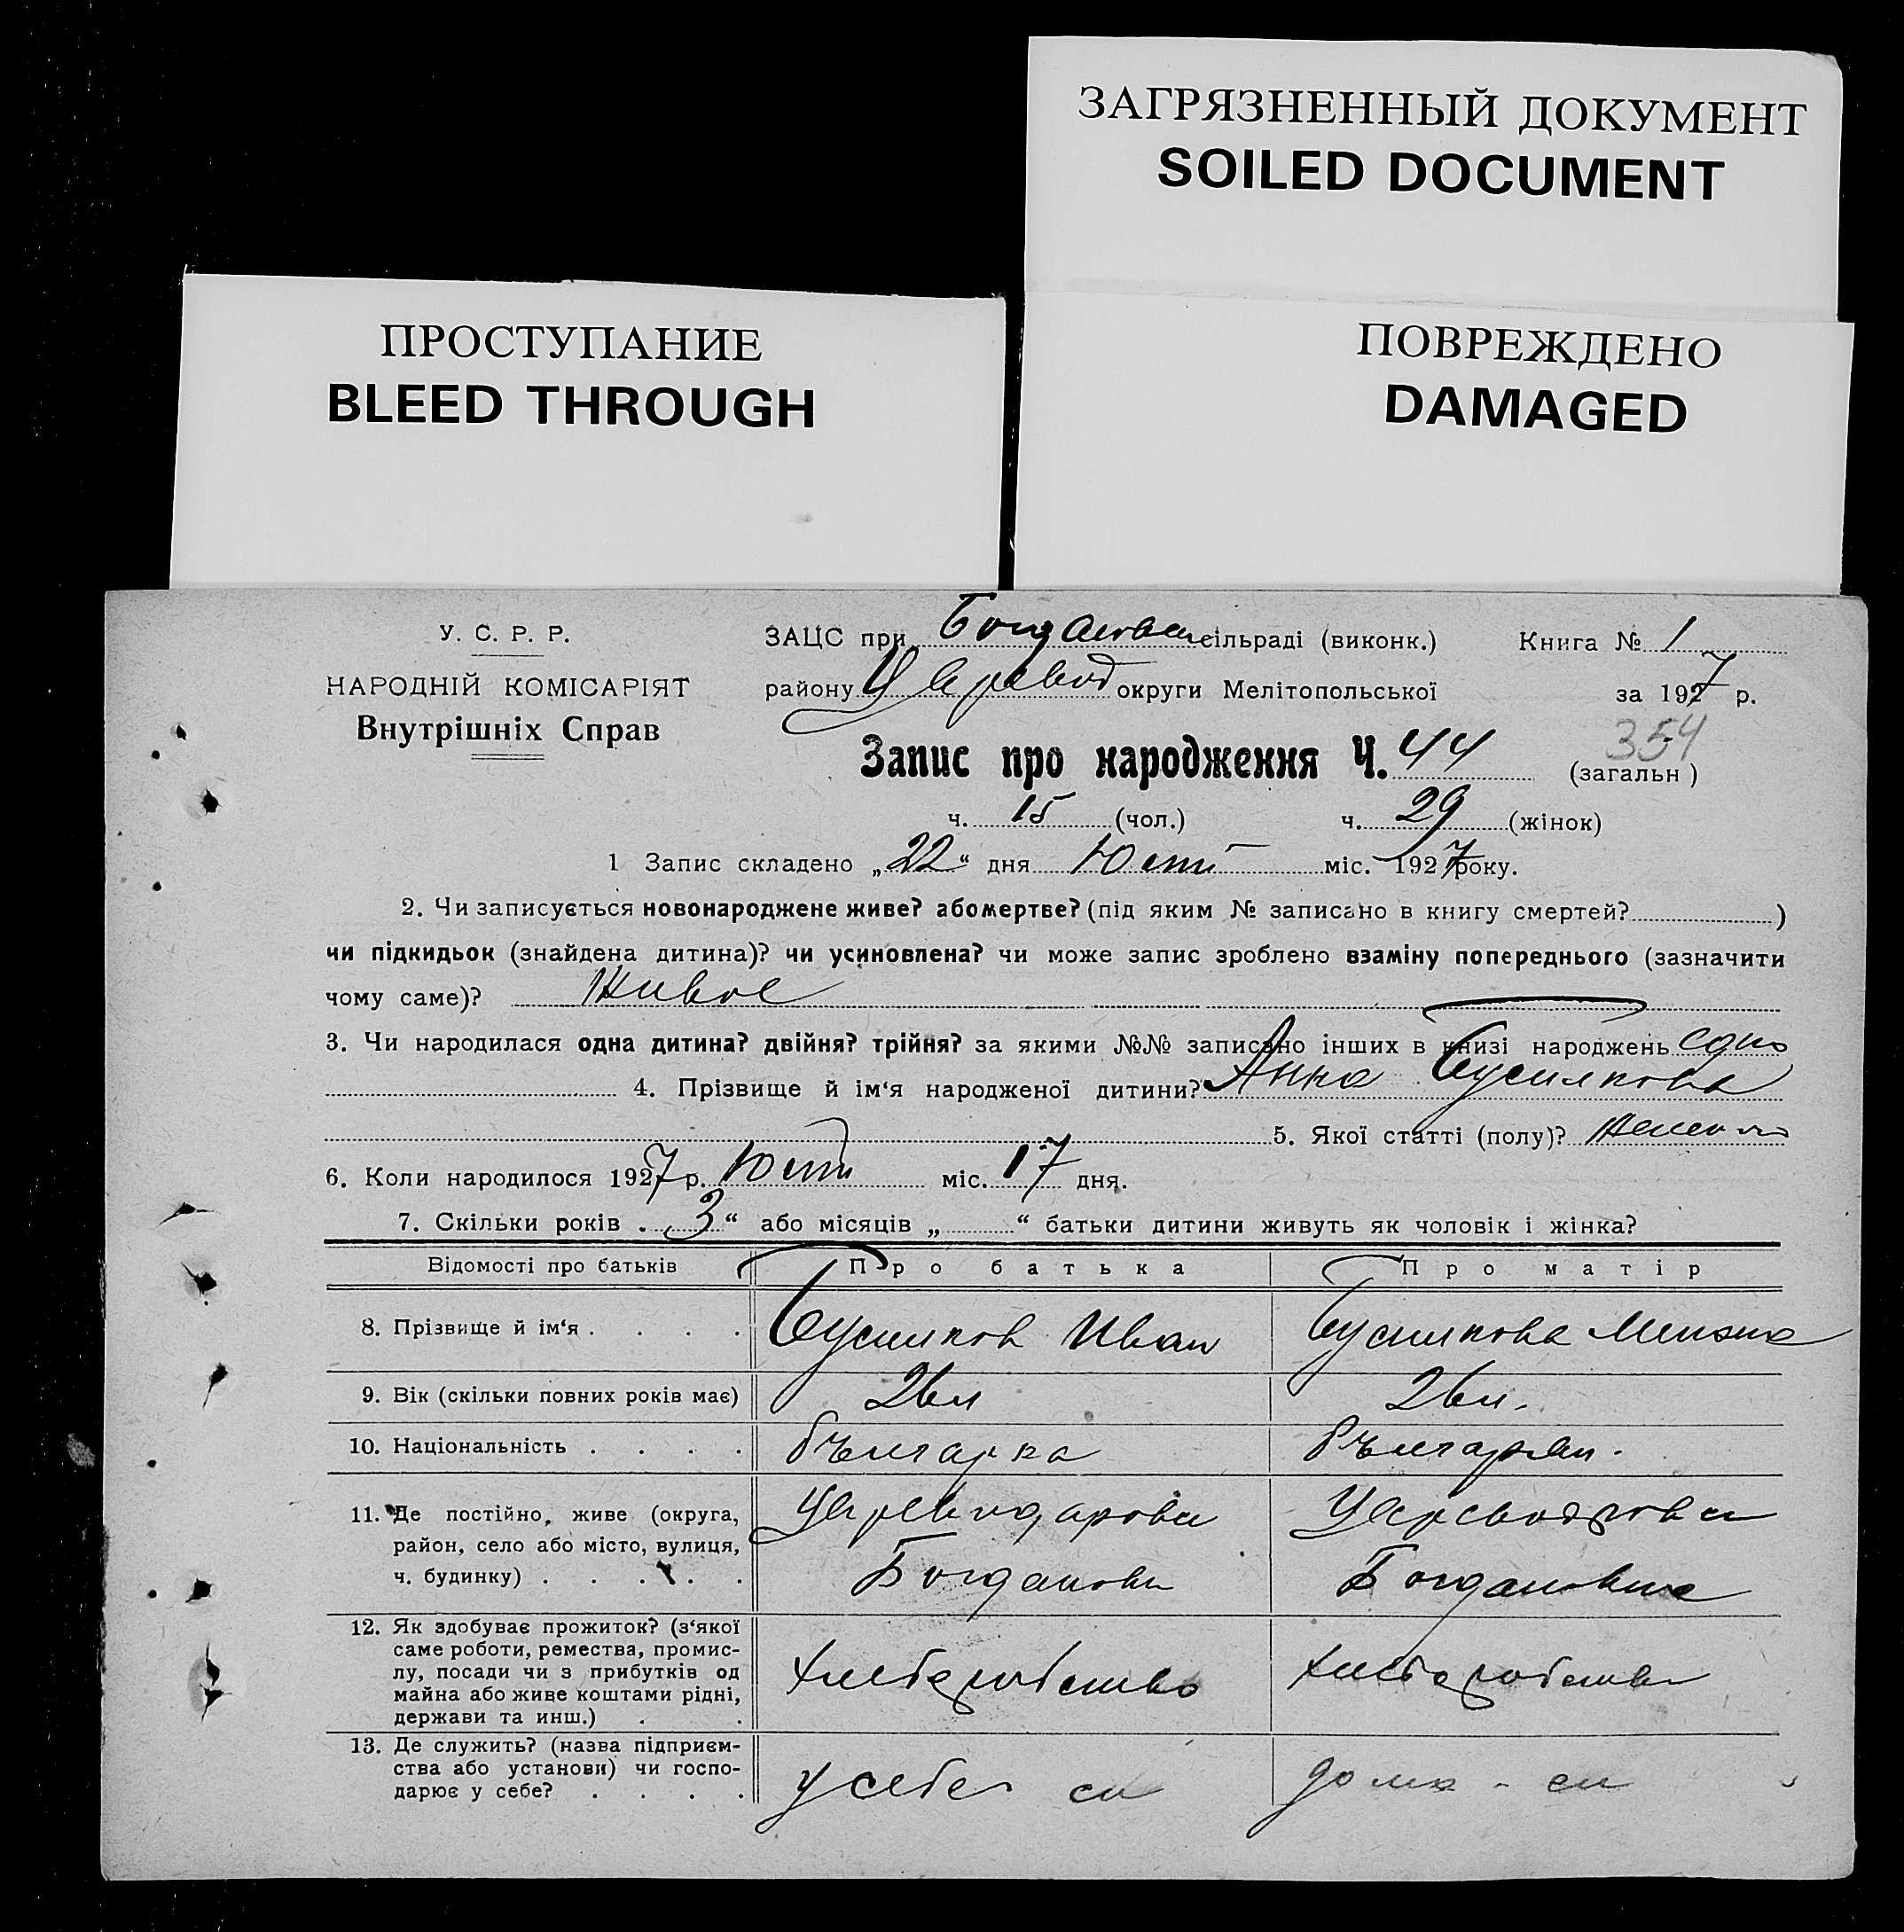 ЗАГРЯЗНЕННЫЙ ДОКУМЕНТ
SOILED DOCUMENT
ПРОСТУПАНИЕ
BLEED THROUGH
ПОВРЕЖДЕНО
DAMAGED
У. С. Р. Р.
НАРОДНІЙ КОМІСАРІЯТ
Внутрішніх Справ
ЗАЦС при сільраді (виконк.) Книга № 1
району Царевод округи Мелітопольської за 1927 р.
354
Запис про народження Ч. 44 (загальн)
ч. 15 (чол.) ч. 29 (жінок)
1 Запис складено „22“ дня міс. 1927 року.
2. Чи записується новонароджене живе? або мертве? (під яким № записано в книгу смертей? )
чи підкидьок (знайдена дитина)? чи усиновлена? чи може запис зроблено взаміну попереднього (зазначити
чому саме)? Живое
3. Чи народилася одна дитина? двійня? трійня? за якими №№ записано інших в книзі народжень одно
4. Прізвище й ім‘я народженої дитини? Анна
5. Якої статті (полу)?
6. Коли народилося 1927 р. міс. 17 дня.
7. Скільки років „ 3 “ або місяців „ “ батьки дитини живуть як чоловік і жінка?
Відомості про батьків Про батька Про матір
8. Прізвище й ім‘я . . . . Иван
9. Вік (скільки повних років має) 26 л 26 л.
10. Національність . . . . българка
11. Де постійно, живе (округа,
район, село або місто, вулиця,
ч. будинку) . . . . .
Богдановка
12. Як здобуває прожиток? (з‘якої
саме роботи, ремества, промис-
лу, посади чи з прибутків од
майна або живе коштами рідні,
держави та инш.) . .
хлеборобство хлеборобство
13. Де служить? (назва підприєм-
ства або установи) чи госпо-
дарює у себе? . . . .
у себе си дома - си